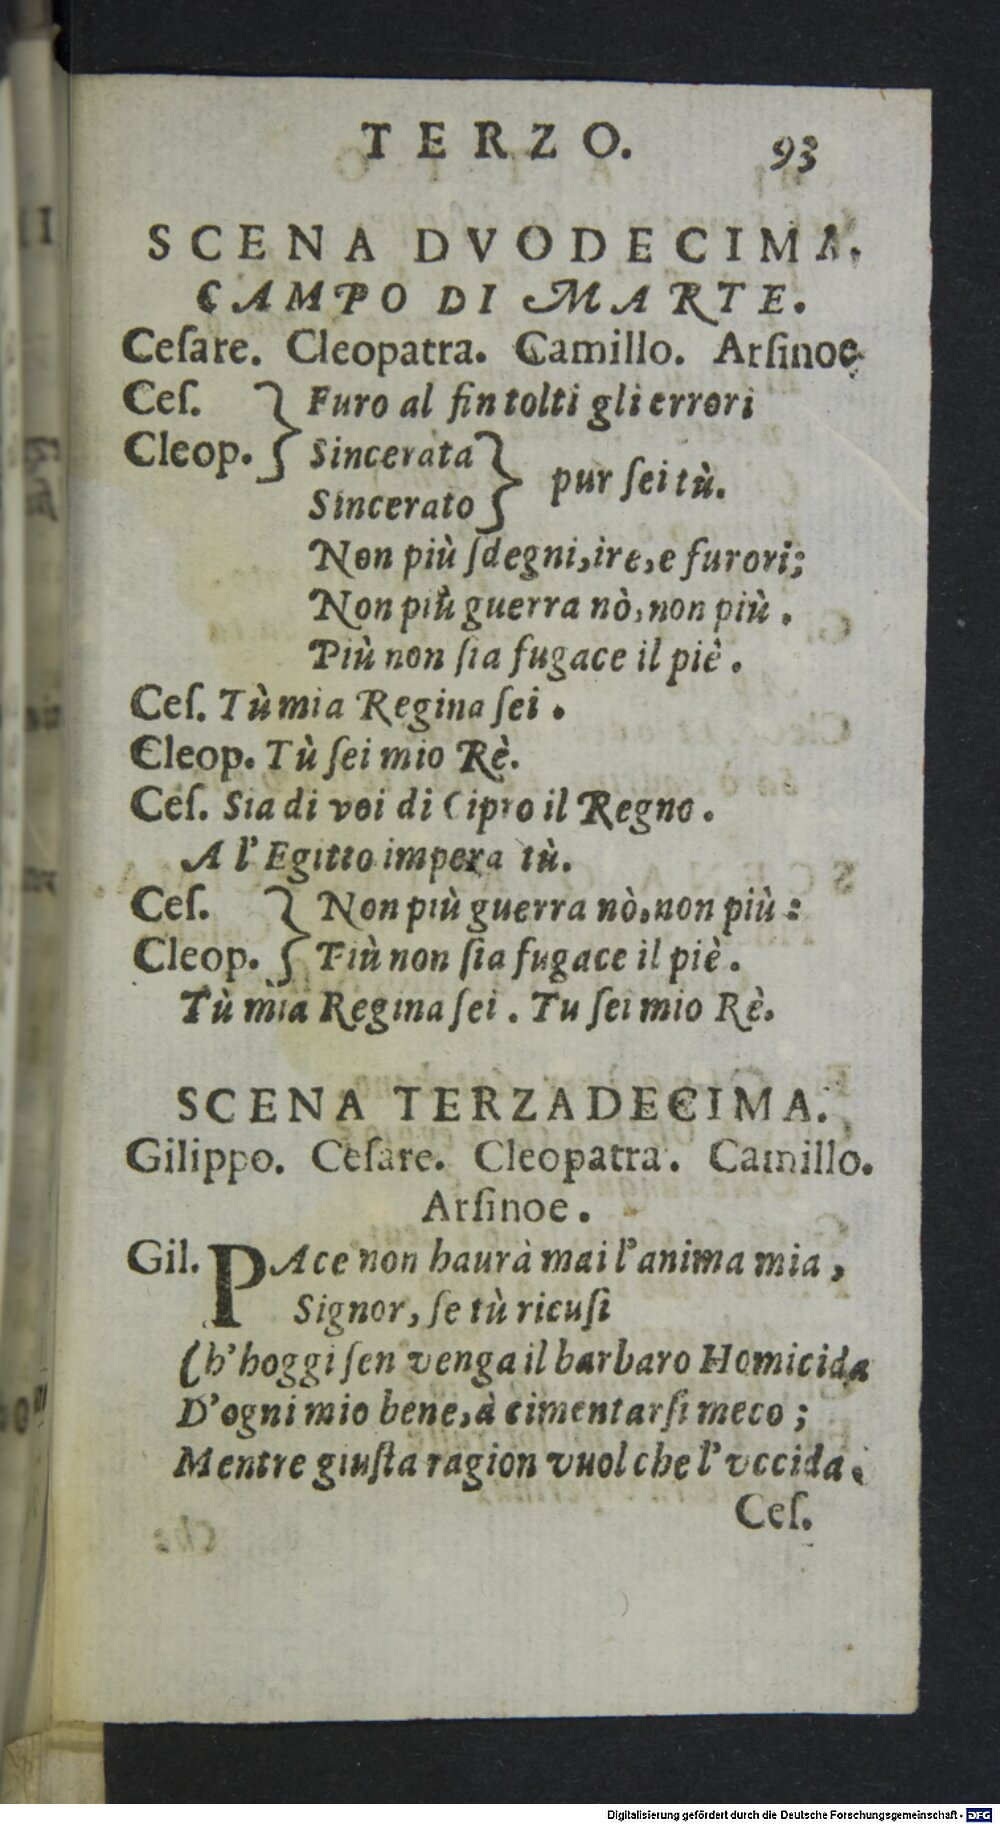 TERZO. 93
SCENA DVODECIMA.
CAMPO DI MARTE.
Ceſare. Cleopatra. Camillo. Arſinoe
Ceſ. } Furo al fin tolti gli errori
Cleop. } Sincerata } pur ſei tù.
Sincerato
Non più ſdegni, ire, e furori;
Non più guerra nò, non più.
Più non ſia fugace il piè.
Ceſ. Tù mia Regina ſei.
Cleop. Tù ſei mio Rè.
Ceſ. Sia di voi di Cipro il Regno.
A l'Egitto impera tù.
Ceſ. } Non più guerra nò, non più:
Cleop. } Più non ſia fugace il piè.
Tù mia Regina ſei. Tu ſei mio Rè.
SCENA TERZADECIMA.
Gilippo. Ceſare. Cleopatra. Camillo.
Arſinoe.
Gil. PAce non haurà mai l'anima mia,
Signor, ſe tù ricuſi
Ch'hoggi ſen venga il barbaro Homicida
D'ogni mio bene, à cimentarſi meco;
Mentre giuſta ragion vuol che l'vccida.
Ceſ.
Digitalisierung gefördert durch die Deutsche Forschungsgemeinschaft - DFG